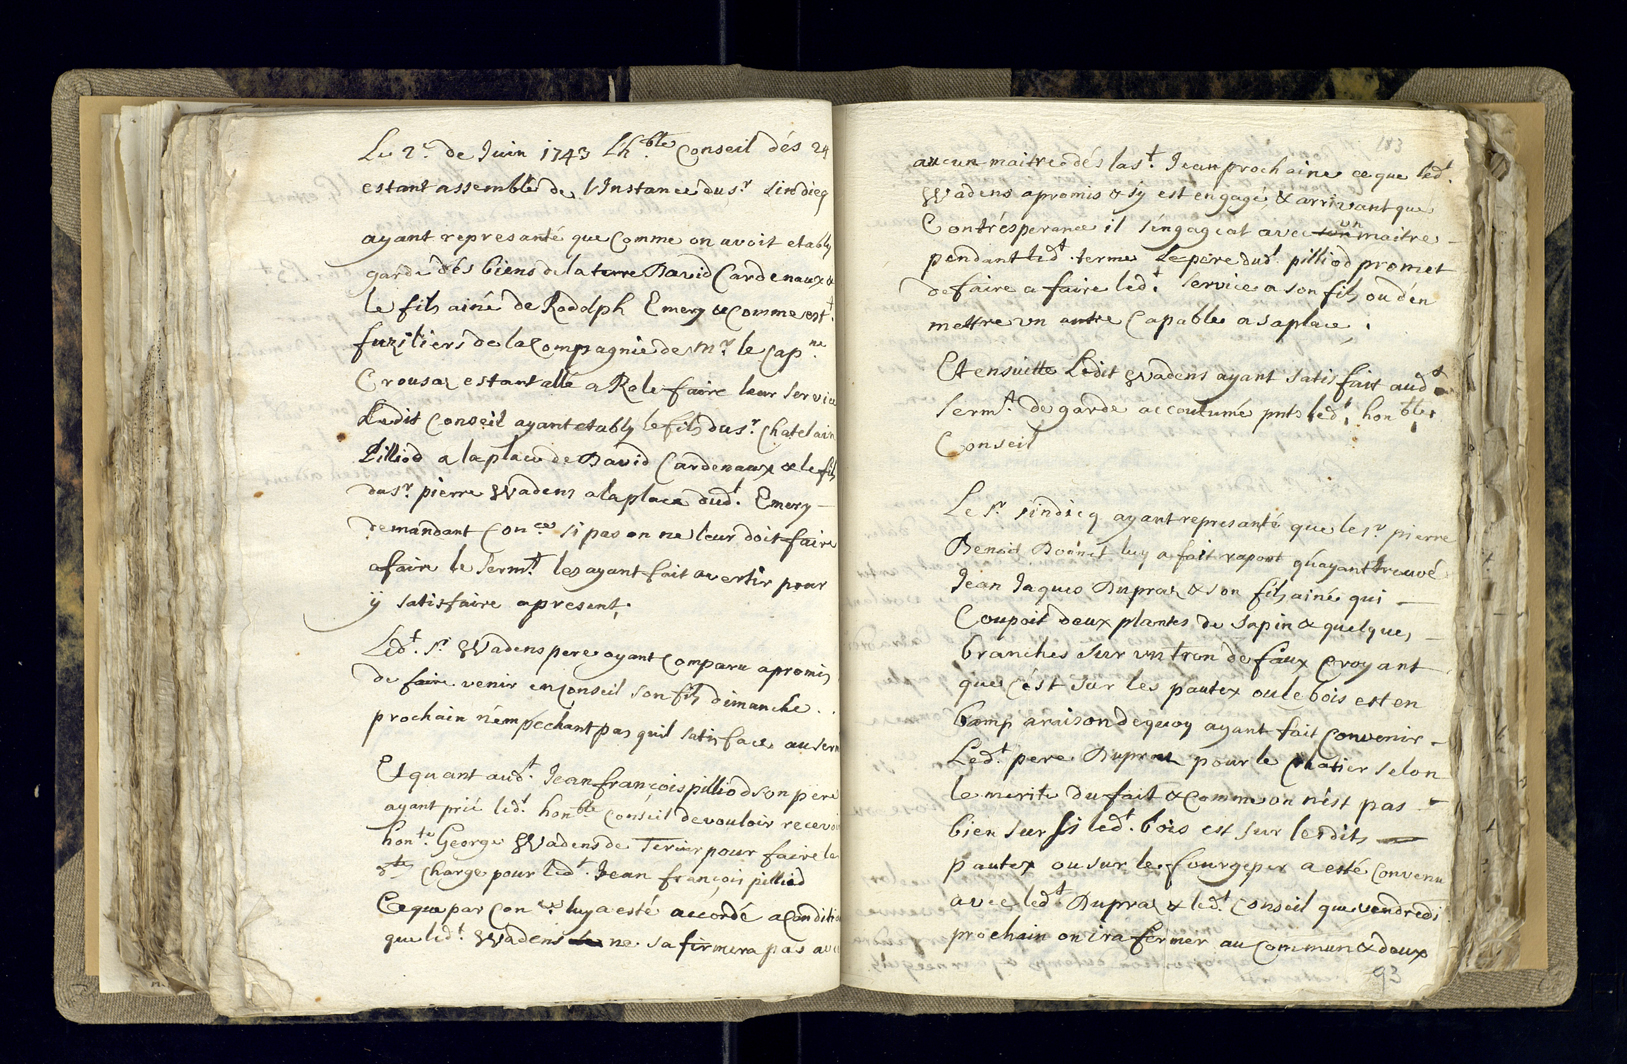 Le 2.e de Juin 1743 Lh.ble Conseil dés 24
estant assemblé de l'Instance du s.r sindicq
ayant represanté que Comme on avoit etably
garde dés biens de la terre David Cardenaux &
le fils ainé de Rodolph Emery & Comme est.t
fuziliers de la Compagnie de Mr. le Cap.ne
Crousaz estant allé a Role faire leur service
Ledit Conseil ayant etably le fils du s.r Chatelain
Pilliod a la place de David Cardenaux & le fils
du s.r pierre Wadens a la place dud.t Emery
demandant Con.ce si pas on ne leur doit faire
a faire le serm.t les ayant fait avertir pour
ÿ satisfaire apresent.
Led.t s.r Wadens pere ayant Comparu a promis
de faire venir en Conseil son fils dimanche
prochain n'empechant pas quil satisface au serm
Et quant aud.t Jean françois pilliod son pere
ayant prié led.t hon.ble Conseil de vouloir recevoir
hon.te George Wadens de Tercier pour faire le
charge pour led.t Jean françois pilliod
Ce que par Con.ce luy a esté accordé a Condition
que led.t Wadens ne s'afirmera pas avec
183
aucun maitre dés la s.t Jean prochaine ce que led.t
Wadens a promis & s'y est engagé & arrivant que
Contrésperance il s'éngageat avec un maitre
pendant led.t terme Le pere dud.t pilliod promet
de faire a faire led.t service a son fils ou d'en
mettre un autre Capable a sa place.
Et ensuitte Ledit Wadens ayant satisfait aud.t
serm.t de garde accoutumé pnts led.t hon.ble
Conseil
Le s.r sindicq ayant represanté que le s.r pierre
Benoit Bonnet luy a fait raport qu'ayant treuvé
Jean Jaques Dupraz & son fils ainé qui
Coupoit deux plantes de sapin & quelques
branches sur un tron de faux Croyant
que c'ést sur les pautex ou le bois est en
bamp a raison dequoy ayant fait Convenir
Led.t pere Dupraz pour le Chatier selon
le merite du fait & Comme on n'est pas
bien sur si led.t bois est sur lesdits
pautex ou sur le fourgeper a esté Convenu
avec led.t Dupraz & led.t Conseil que vendredi
prochain on ira fermer au Commun & deux
93